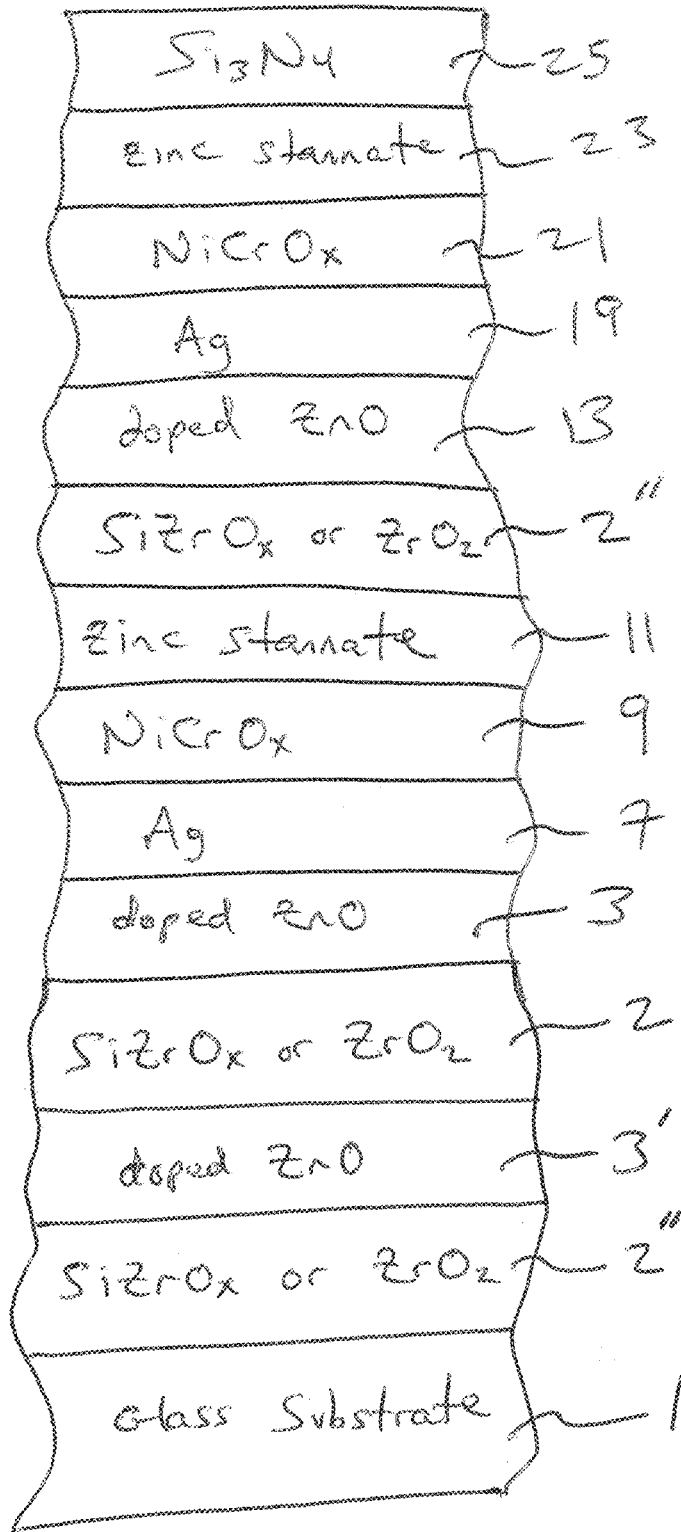 Si₃N₄ 25
zinc stannate 23
NiCrOₓ 21
Ag 19
doped ZnO 13
SiZrOₓ or ZrO₂ 2"
Zinc stannate 11
NiCrOₓ 9
Ag 7
doped ZnO 3
SiZrOₓ or ZrO₂ 2
doped ZnO 3'
SiZrOₓ or ZrO₂ 2"
Glass Substrate 1